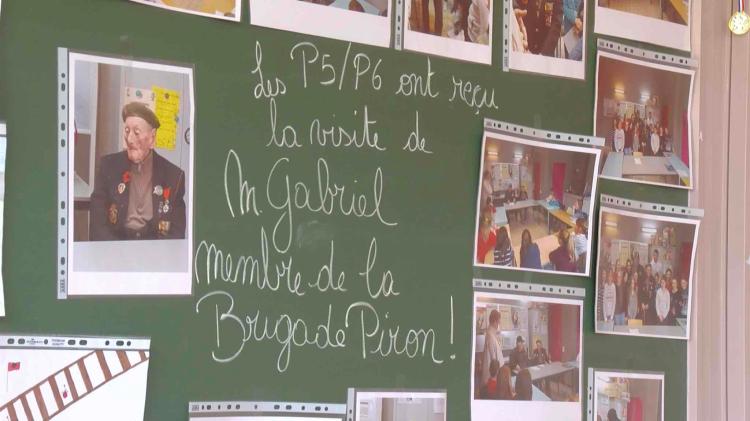 Les P5/P6 ont reçu
la visite de
M. Gabriel
membre de la
Brigade Piron !